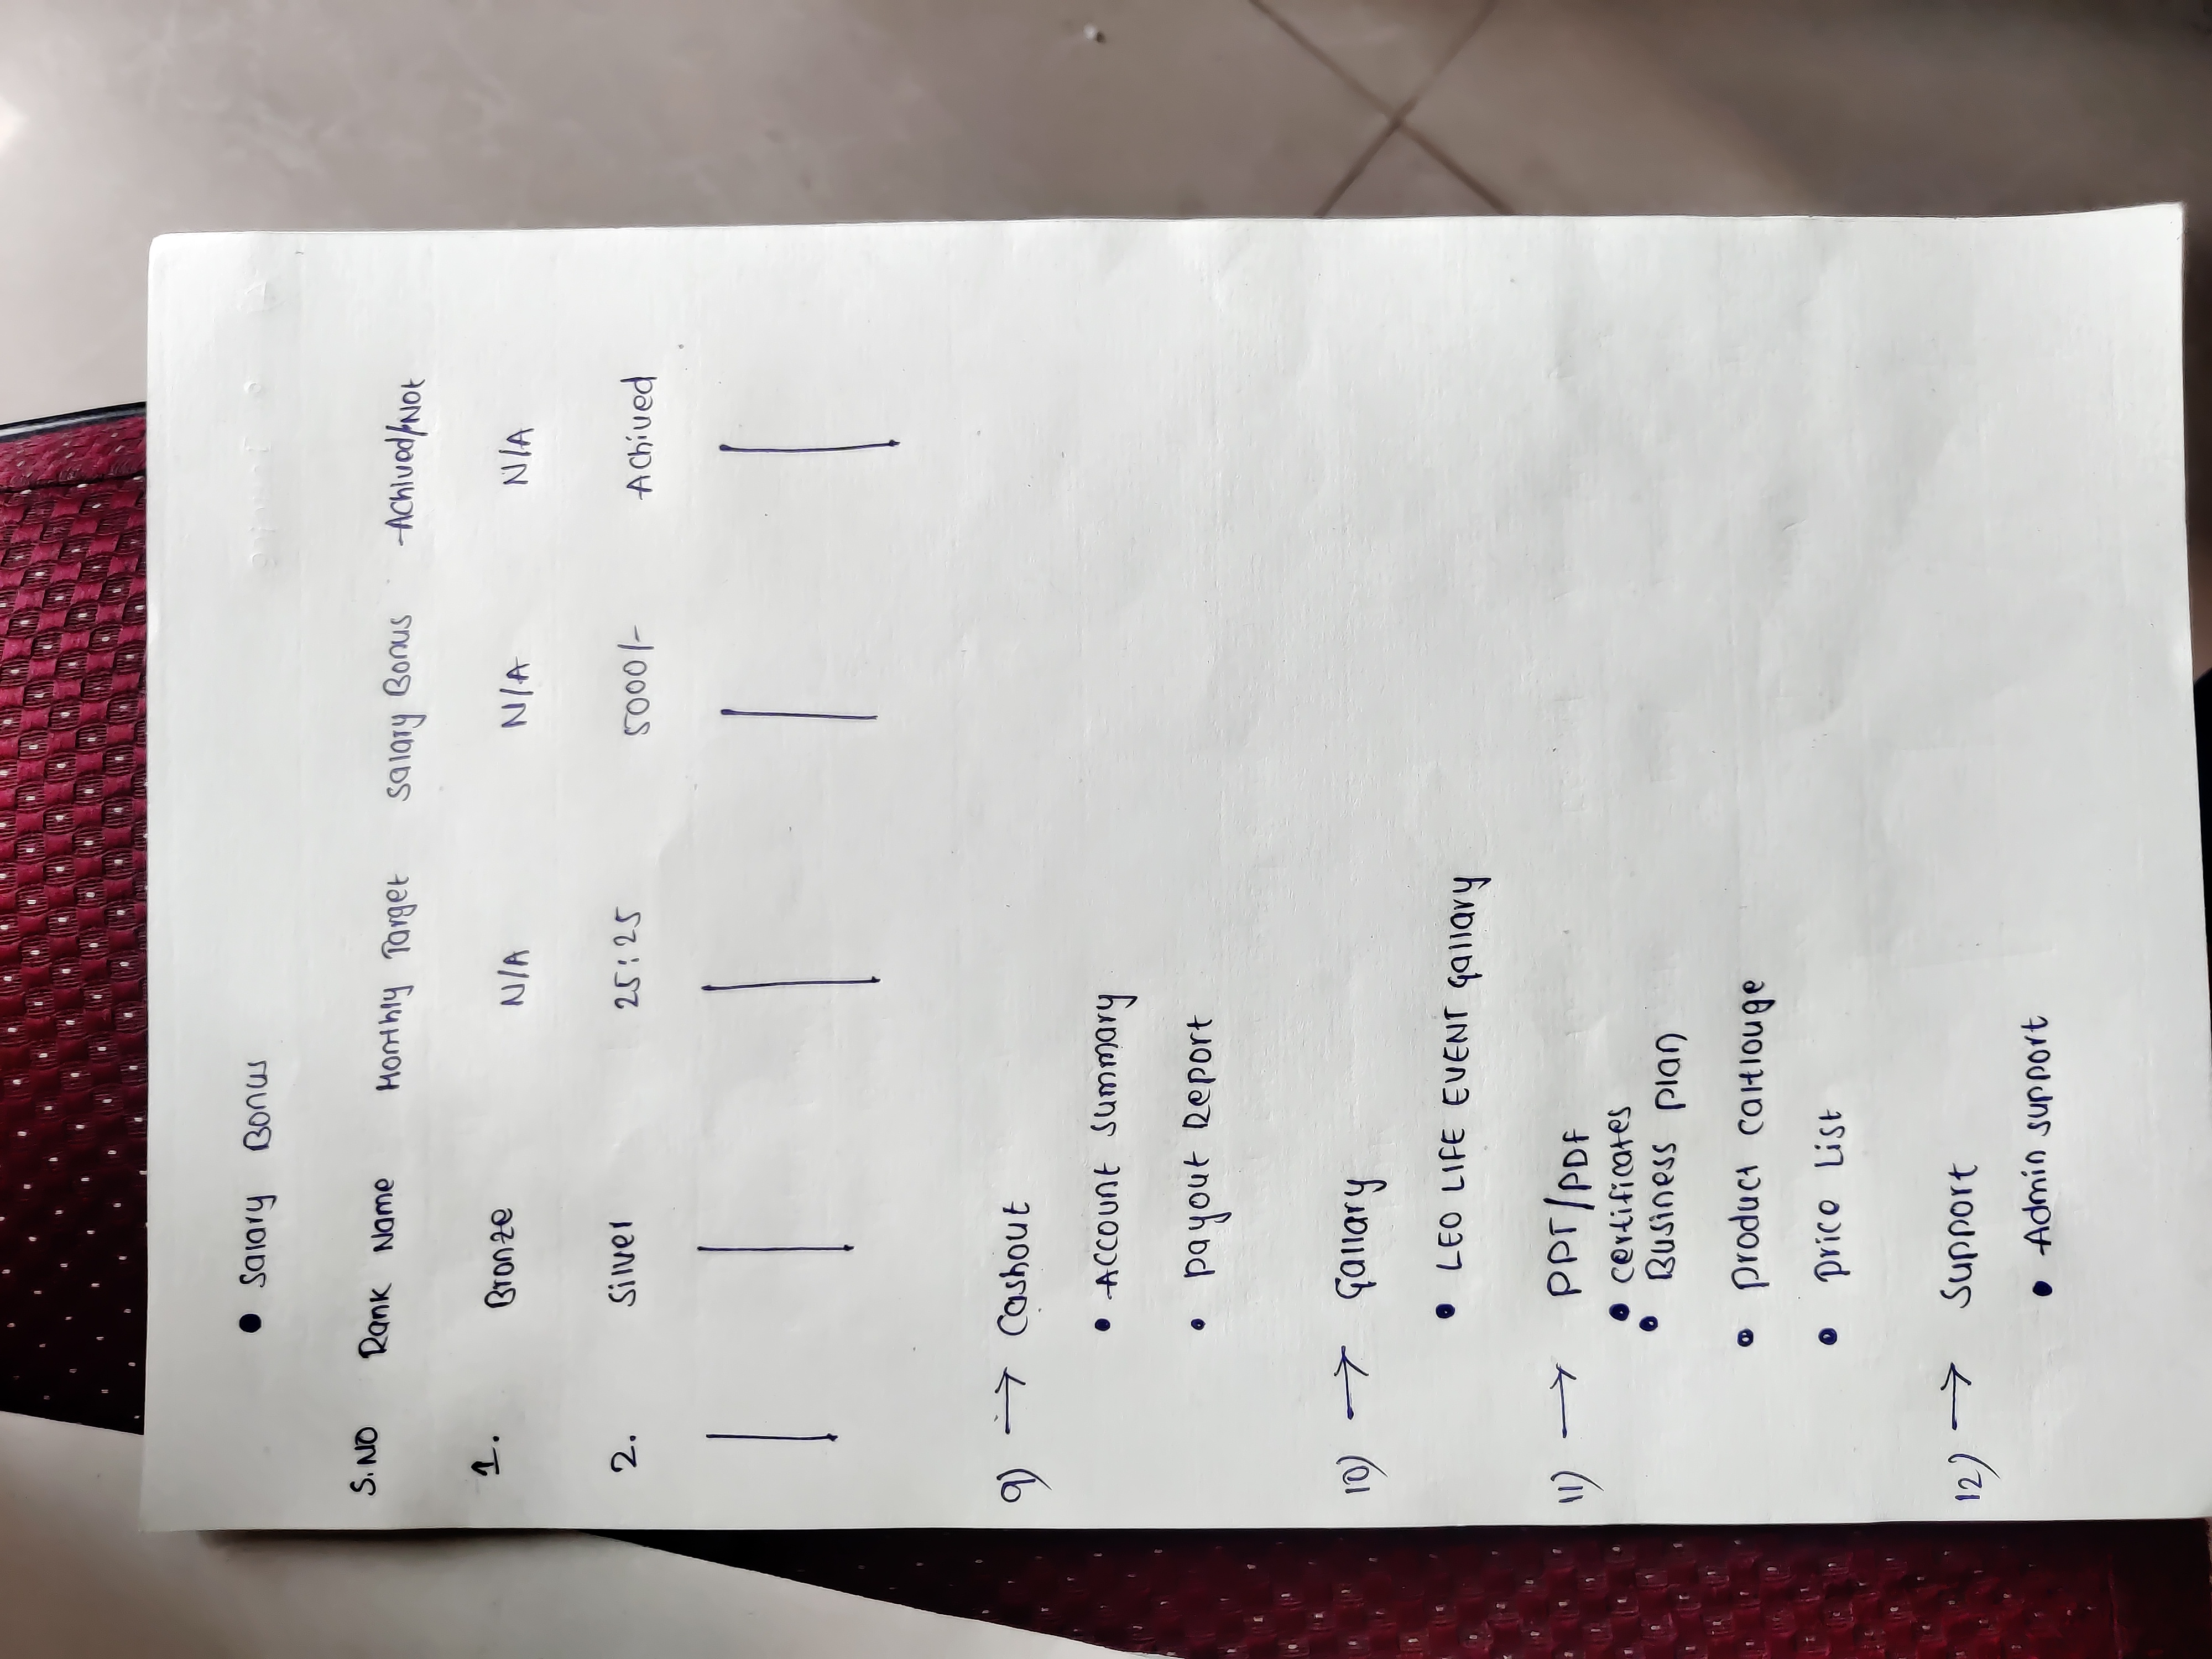 • Salary Bonus
S.NO Rank Name Monthly Target Salary Bonus Achived/Not
1. Bronze N/A N/A N/A
2. Silver 25:25 5000/- Achived
9) → Cashout
• Account Summary
• Payout Report
10) → Gallary
• LEO LIFE EVENT Gallary
11) → PPT/PDF
• Certificates
• Business plan
• Product Catlouge
• Price List
12) → Support
• Admin Support